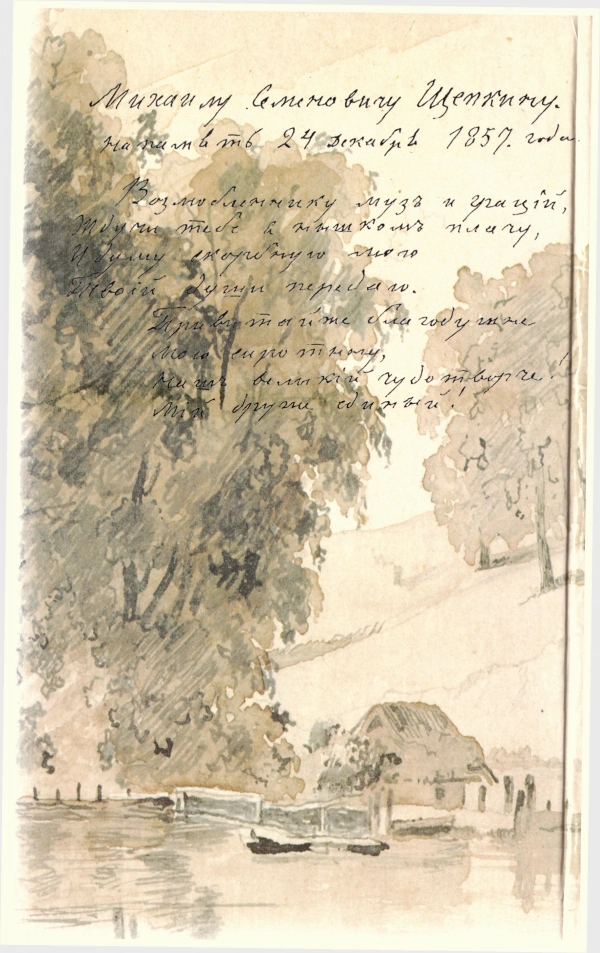 Михаилу Семеновичу Щепкину.
на память 24 декабря 1857. года.
Возлюбленнику музъ и грацій,
Ждучи тебе я нышкомъ плачу,
И думу скорбную мою
Твоій души передаю.
Привитай же благодушне
Мою сиротыну,
Нашъ великій чудотворче!
Мій друже единый!